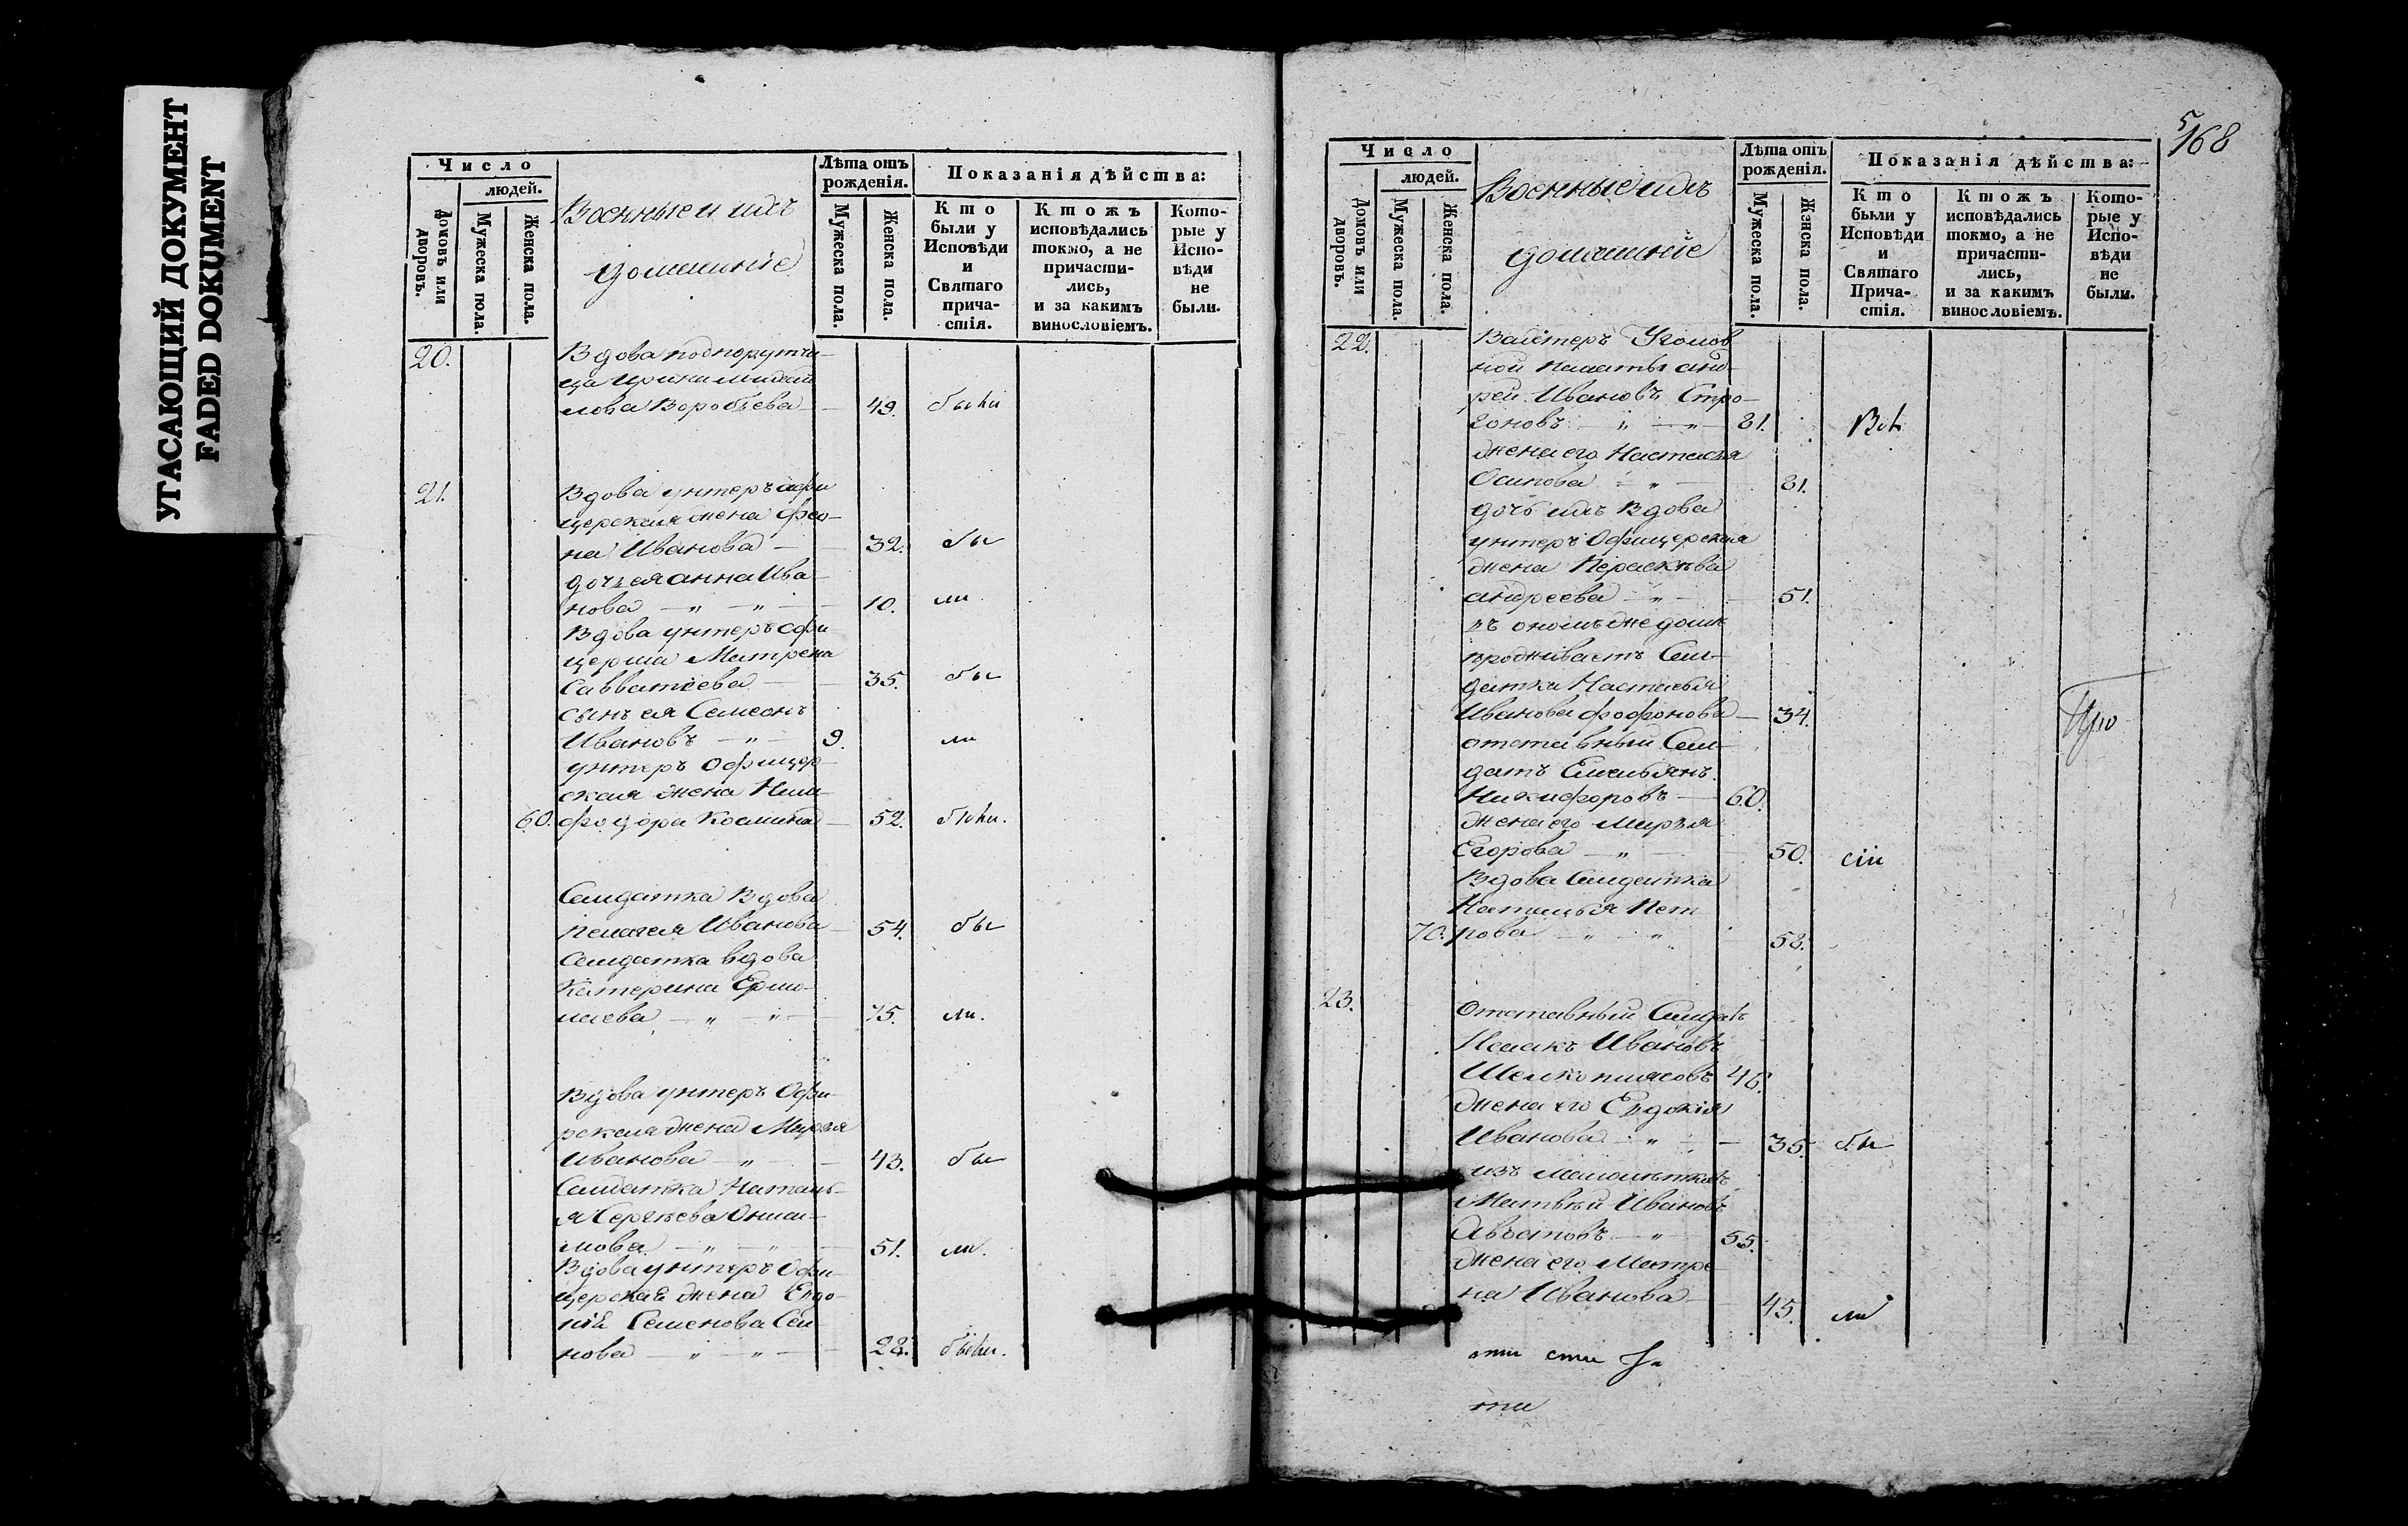 УГАСАЮЩИЙ ДОКУМЕНТ
FADED DOKUMENT
Число
людей.
Домовъ или дворовъ.
Мужеска пола.
Женска пола.
Военные и ихъ
домашніе
Лѣта отъ рожденія.
Мужеска пола.
Женска пола.
Показанія дѣйства:
Кто были у Исповѣди и Святаго причастія.
Ктожъ исповѣдались токмо, а не причастились, и за какимъ винословіемъ.
Которые у Исповѣди не были.
20.
Вдова подпорутчи-
ца Ирина Михай
лова Воробьева 49. были
21.
Вдова унтеръ офи
церская жена Фео-
на Иванова 32. бы
дочь ея Анна Ива-
нова — „ — „ — 10. ли
Вдова унтеръ офи-
церша Матрена
Савватѣева 35. бы
сынъ ея Семеонъ
Ивановъ — „ — 9. ли
унтеръ Офицер-
ская жена Ним-
60. фодора Космина 52. были.
Салдатка Вдова
Пелагея Иванова 54. бы
Салдатка вдова
Катерина Ермо-
лаева — „ — „ — 75. ли.
Вдова унтеръ Офи-
рская жена Марья
Иванова — „ — 43. бы
Салдатка Наталь-
я Сергѣева Аниси-
мова — „ — „ — 51. ли.
Вдова унтеръ Офи-
церская жена Евдо-
кія Семенова Сем-
нова — „ — „ — 28. были.
5
168
Число
людей.
Домовъ или дворовъ.
Мужеска пола.
Женска пола.
Военные ихъ
домашніе
Лѣта отъ рожденія.
Мужеска пола.
Женска пола.
Показанія дѣйства:
Кто были у Исповѣди и Святаго Причастія.
Ктожъ исповѣдались токмо, а не причастились, и за какимъ винословіемъ.
Которые у Исповѣди не были.
22.
Вахтеръ Уголов
ной Палаты Анд-
рей Ивановъ Стро-
гоновъ — „ — „ — 81. Всѣ
жена его Настасья
Осипова — „ — 81.
дочь ихъ Вдова
унтеръ Офицерская
жена Пераскѣва
Андреева — „ — 51.
въ ономъ же доме
проживаетъ Сал-
датка Настасья
Иванова Фофонова — 34.
отставный Сал-
датъ Емельянъ
Никифоровъ — 60.
жена его Марья
Егорова — „ — 50. сіи
Вдова Салдатка
Наталья Пет
70. рова — „ — „ 58.
23.
Отставный Салдатъ
Исаакъ Ивановъ
Шелкоплясовъ 46.
жена его Евдокія
Иванова — „ — 35. бы
изъ малолѣтковъ
Матвѣй Ивановъ
Августовъ — „ — 55.
жена его Матре-
на Иванова 45. ли